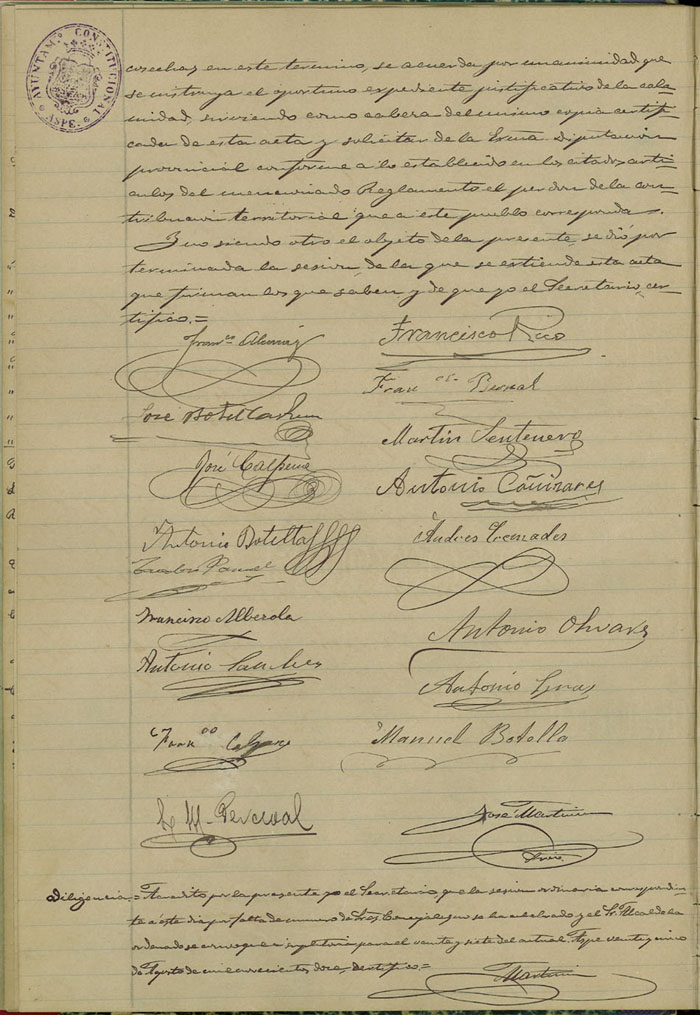 AYUNTAM. CONSTITUCIONAL
ASPE.
cosechas en este termino, se acuerda por unanimidad que
se instruya el oportuno expediente justificativo de la cala-
midad, sirviendo como cabeza del mismo copia certifi-
cada de esta acta y solicitar de la Excma. Diputacion
provincial conforme a lo establecido en los citados arti-
culos del mencionado Reglamento el perdon de la con-
tribucion territorial que a este pueblo corresponda.
Y no siendo otro el objeto de la presente, se dió por
terminada la sesion, de la que se estiende esta acta
que firman los que saben y de que yo el Secretario, cer-
tifico.=
Franco. Almiñ
Francisco Rico
Franco. Bernal
José Botella
Martin Sentenero
José Calpena
Antonio Cañizares
Antonio Botella
Andres Cremades
Francisco Alberola
Antonio Olivares
Antonio Sanchez
Antonio
Franco
Manuel Botella
M. Percival
José Martinez
Diligencia.= Acredito por la presente yo el Secretario que la sesion ordinaria correspondien-
te a este dia por falta de numero de Sres. Concejales no se ha celebrado y el Sr. Alcalde ha
ordenado se convoque a supletoria para el veinte y siete del actual. Aspe veinticinco
de Agosto de mil novecientos doce, certifico=
Martinez